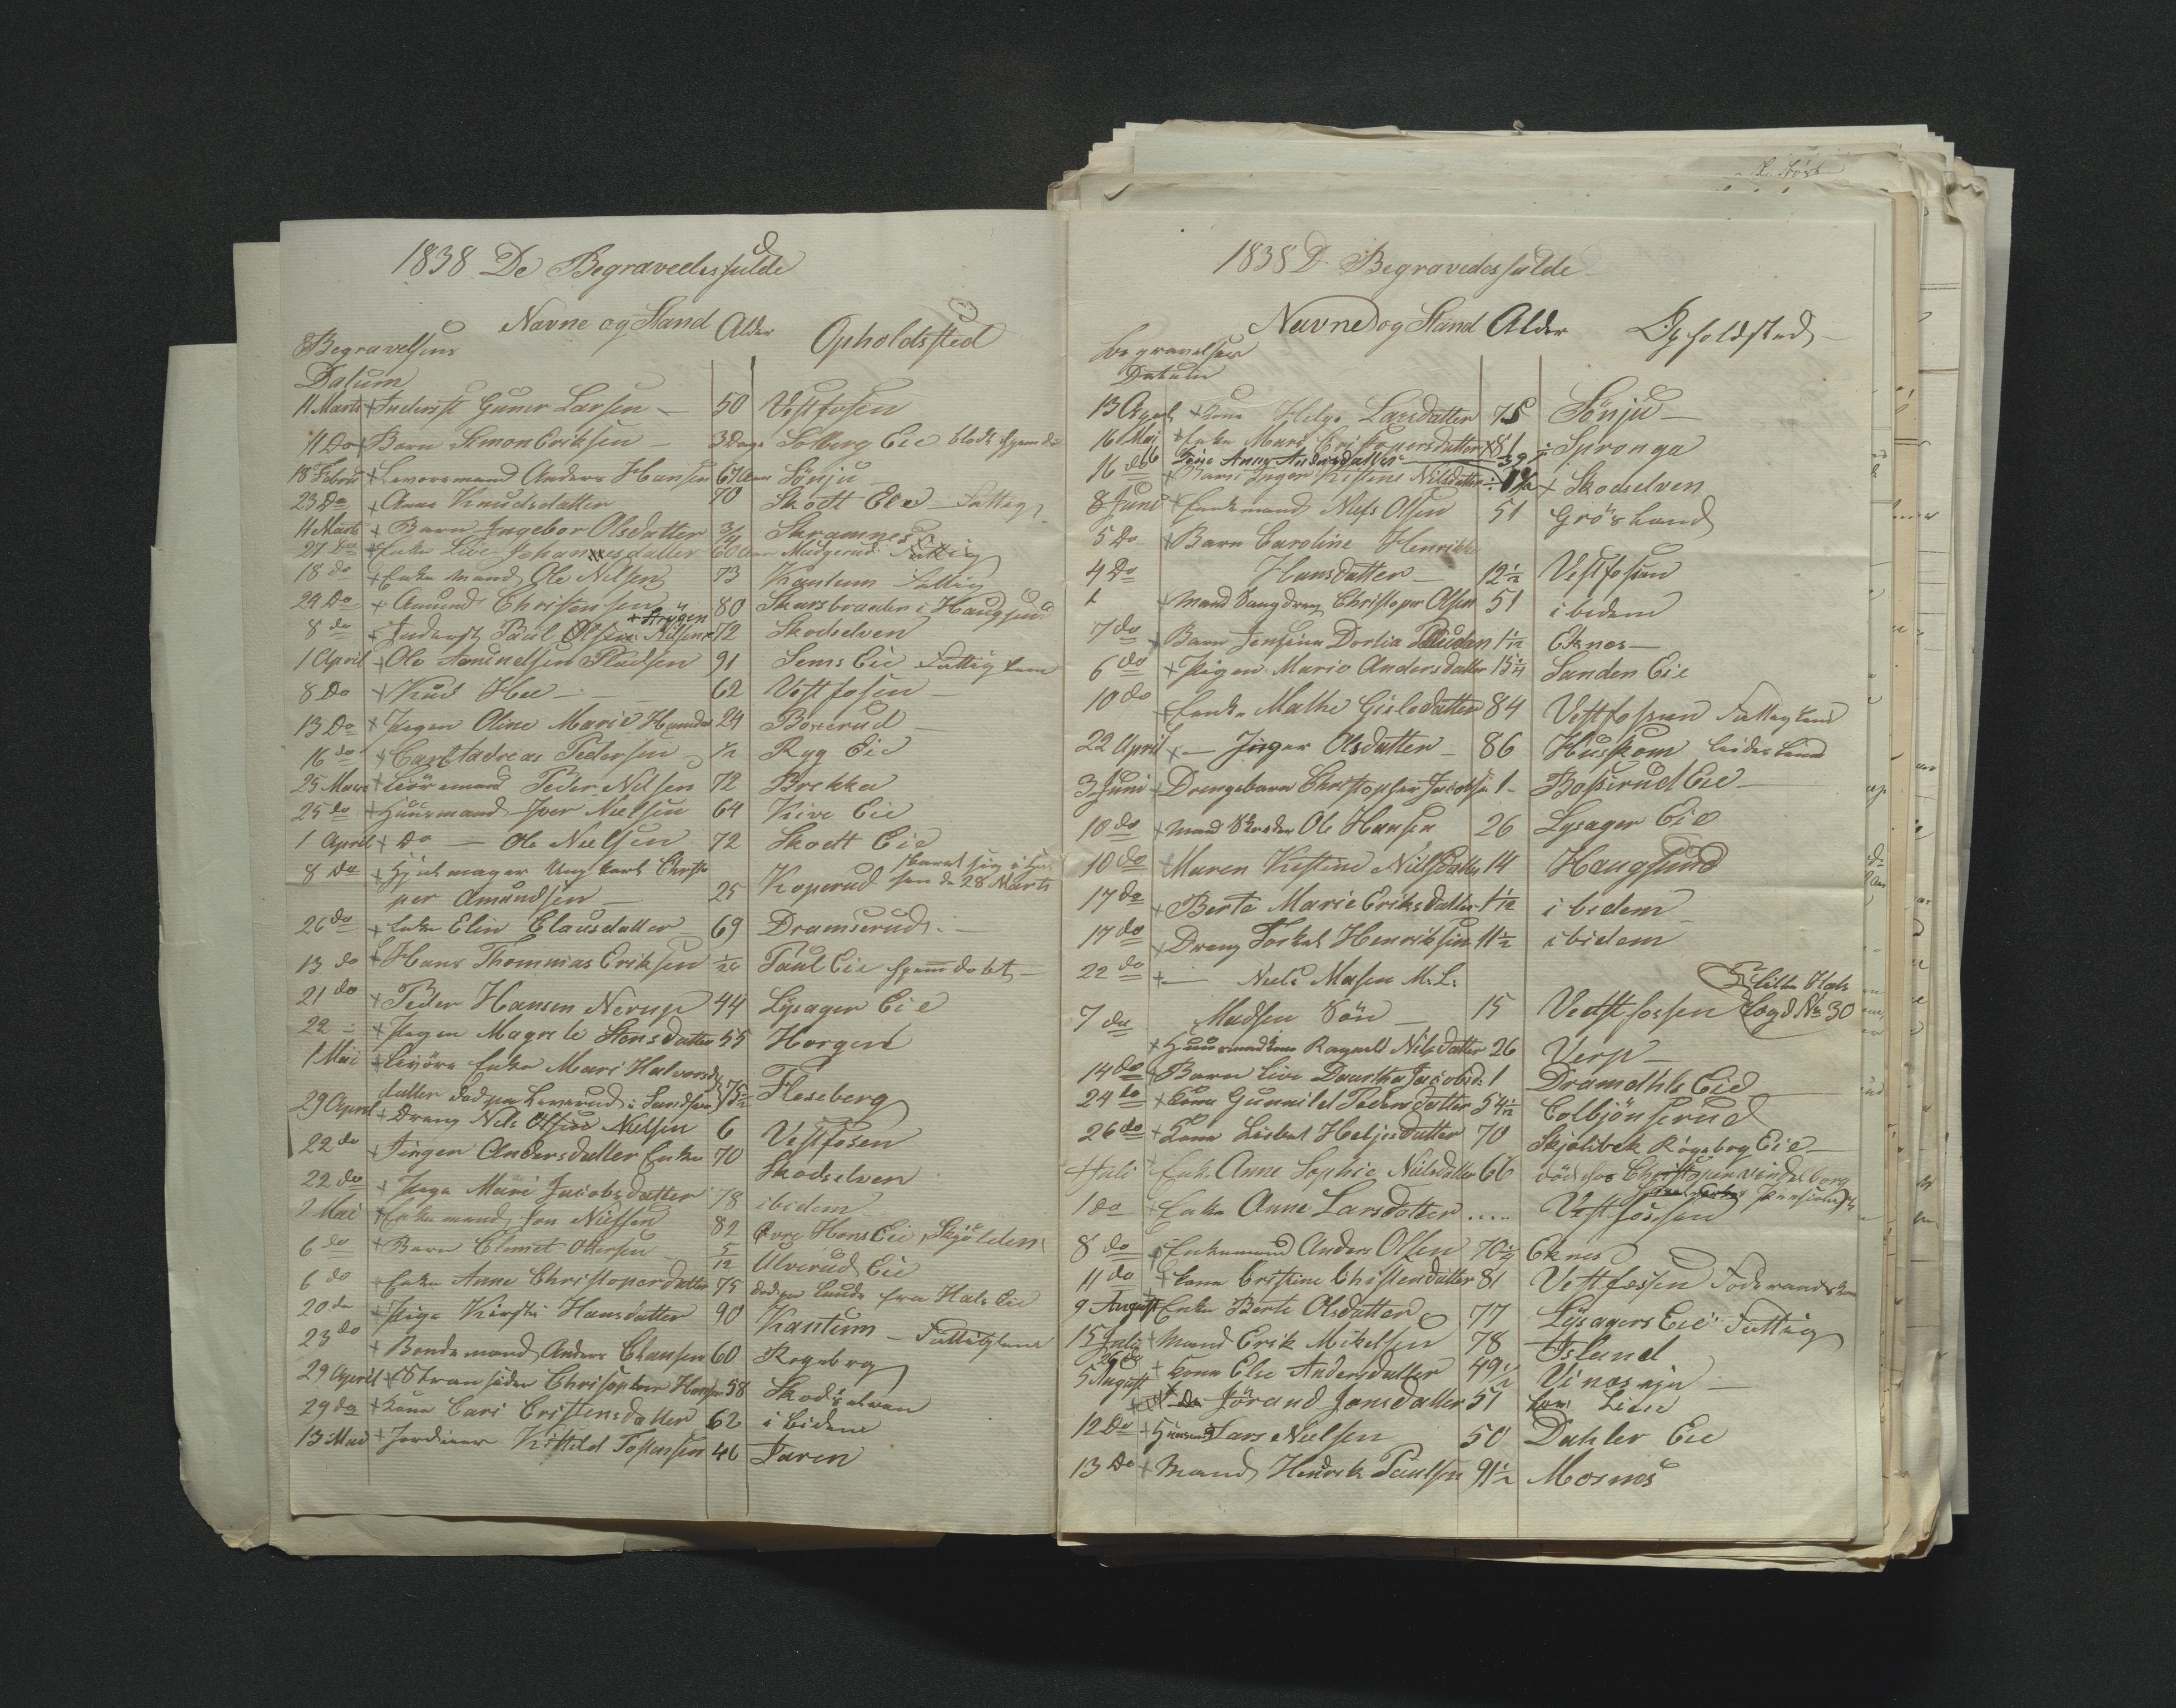 1838 De Begravedes fulde
Navne og Stand Alder Opholdssted
Begravelsens
Datum
11 Marts + Inderst Guner Larsen — 50 Vestfosen
11 Do + Barn Simon Eriksen — 3 Dage Solberg Eie blodt
18 Februar + Anders Hansen 67 Sönju
23 Do + Anne Knudsdatter 70 Skodt Eie — Fattig
4 Marts + Barn Ingebor Olsdatter 3/4 Skramnes
27 Do + Enke Live Johannesdatter 60 Fattig
18 do + Enke mand Ole Nilsen 73 Kantum Fattig
24 Do + Amund Christensen 80 Skarsbraaten i Haugsund
8 do + Inderst Paul Nilsen 72 Skodselven
1 April + Ole Amundsen Pladsen 91 Sems Eie Fattiglem
8 Do + Knud Hee — 62 Vestfosen —
13 Do + Pigen Oline Marie 24 Boserud —
16 do + Carl Andreas Pedersen 1/2 Ryg Eie
25 Marts + Peder Nilsen 72 Brekka
25 do + Huusmand Iver Nielsen 64 Kive Eie
1 April + Do — Ole Nielsen 72 Skodt Eie
8 Do + Ung karl Christo
per Amundsen — 25 Koperud den 28 Marts
26 do + Enke Elin Clausdatter 69 Dramserud —
13 do + Hans Thommas Eriksen 1/24 Paul Eie hjemdöbt —
21 do + Peder Hansen Nerup 44 Lysager Eie
22 - + Pigen Magrete Stensdatter 55 Horgen
1 Mai + Enke Mari Halvors
datter död paa i Sandsver 75 1/2 Fleseberg
29 April + Dreng Nils Nielsen 6 Vestfosen
22 do + Jingen Andersdatter Enke 70 Skodselven
22 do + Pige Mari Jacobsdatter 78 ibidem
2 Mai + Enkemand Jon Nielsen 82 Hons Eie, Skjölden
6 do + Barn Clemet Ottersen 5/12 Ulverud Eie
6 do + Enke Anne Christoperdatter 75 död paa Lunde fra Hals Eie
20 do + Pige Kirsti Hansdatter 90 Kantum — Fattiglem
23 do + Bondemand Anders Clausen 60 Rogeberg
29 April + Stransider Christopher Hansen 58 Skodselven
29 do + Kone Cari Cristensdatter 62 ibidem
13 Mai + Jordeier Kittild Tostensen 46 Faren
1838 D Begravedes fulde
Navne og Stand Alder Opholdsted
begravelses
Datum
13 April + Kone Helge Larsdatter 75 Sönju —
16 Mai + Enke Mari Cristopersdatter 81 Spronga
16 Pige Anne Andersdatter 39
16 do + Barn Inger Kistine Nilsdatter 1/2 + Skodselven
8 Juni + Enkemand Niels Olsen 51 Grösland
5 Do + Barn Caroline Henrikke
4 Do Hansdatter — 12 1/2 Vestfossen
1 + Mand Christoper Olsen 51 ibidem
7 do + Barn Jensine Dortia 1 1/12 Eknes —
6 do + Pigen Marie Andersdatter 15 1/4 Sanden Eie
10 do + Enke Mathe Gislesdatter 84 Vestfossen Fattiglem
22 April + — Inger Olsdatter — 86 Huskom
3 Juni + Drengebarn Christopher Jacobsen 1 — Bosserud Eie —
10 do + Mand Ole Hansen 26 Lysager Eie
10 do + Maren Kistine Nielsdatter 14 Haugsund
17 do + Berte Marie Eriksdatter 1 1/12 ibidem
17 do + Dreng Torkel Henriksen 11 1/2 ibidem
22 do + — Niels Masen M. L.
7 do Madsen Sön — 15 Vestfossen Lögd No 30
+ Huusmandkone Ragnild Nilsdatter 26 Verp —
14 do + Barn Live Dorthe Jacobsd: 1 Eie
24 do + Kone Gunnild Pedersdatter 54 1/12 Colbjönserud
26 do + Kone Lisbet Heljesdatter 70 Skjölibek Rögeberg Eie —
1 Juli + Enke Anne Sophie Nielsdatter 66 död hos
1 do + Enke Anne Larsdatter ..... Vestfossen
8 do + Enkemand Anders Olsen 70 1/4 Eknes
11 do + Kone Cristine Christensdatter 81 Vestfossen Föderaads
9 August + Enke Berte Olsdatter 77 Lysagers Eie Fattig
15 Juli + Mand Erik Mikelsen 78 Island
29 do
5 August + Kone Else Andersdatter 49 1/2 Vinæs eje —
+ do Jörand Jonsdatter 51 Lien
12 Do + Huusmd Lars Nielsen 50 Dahler Eie
13 Do + Mand Henrik Paulsen 91 1/2 Mosnes